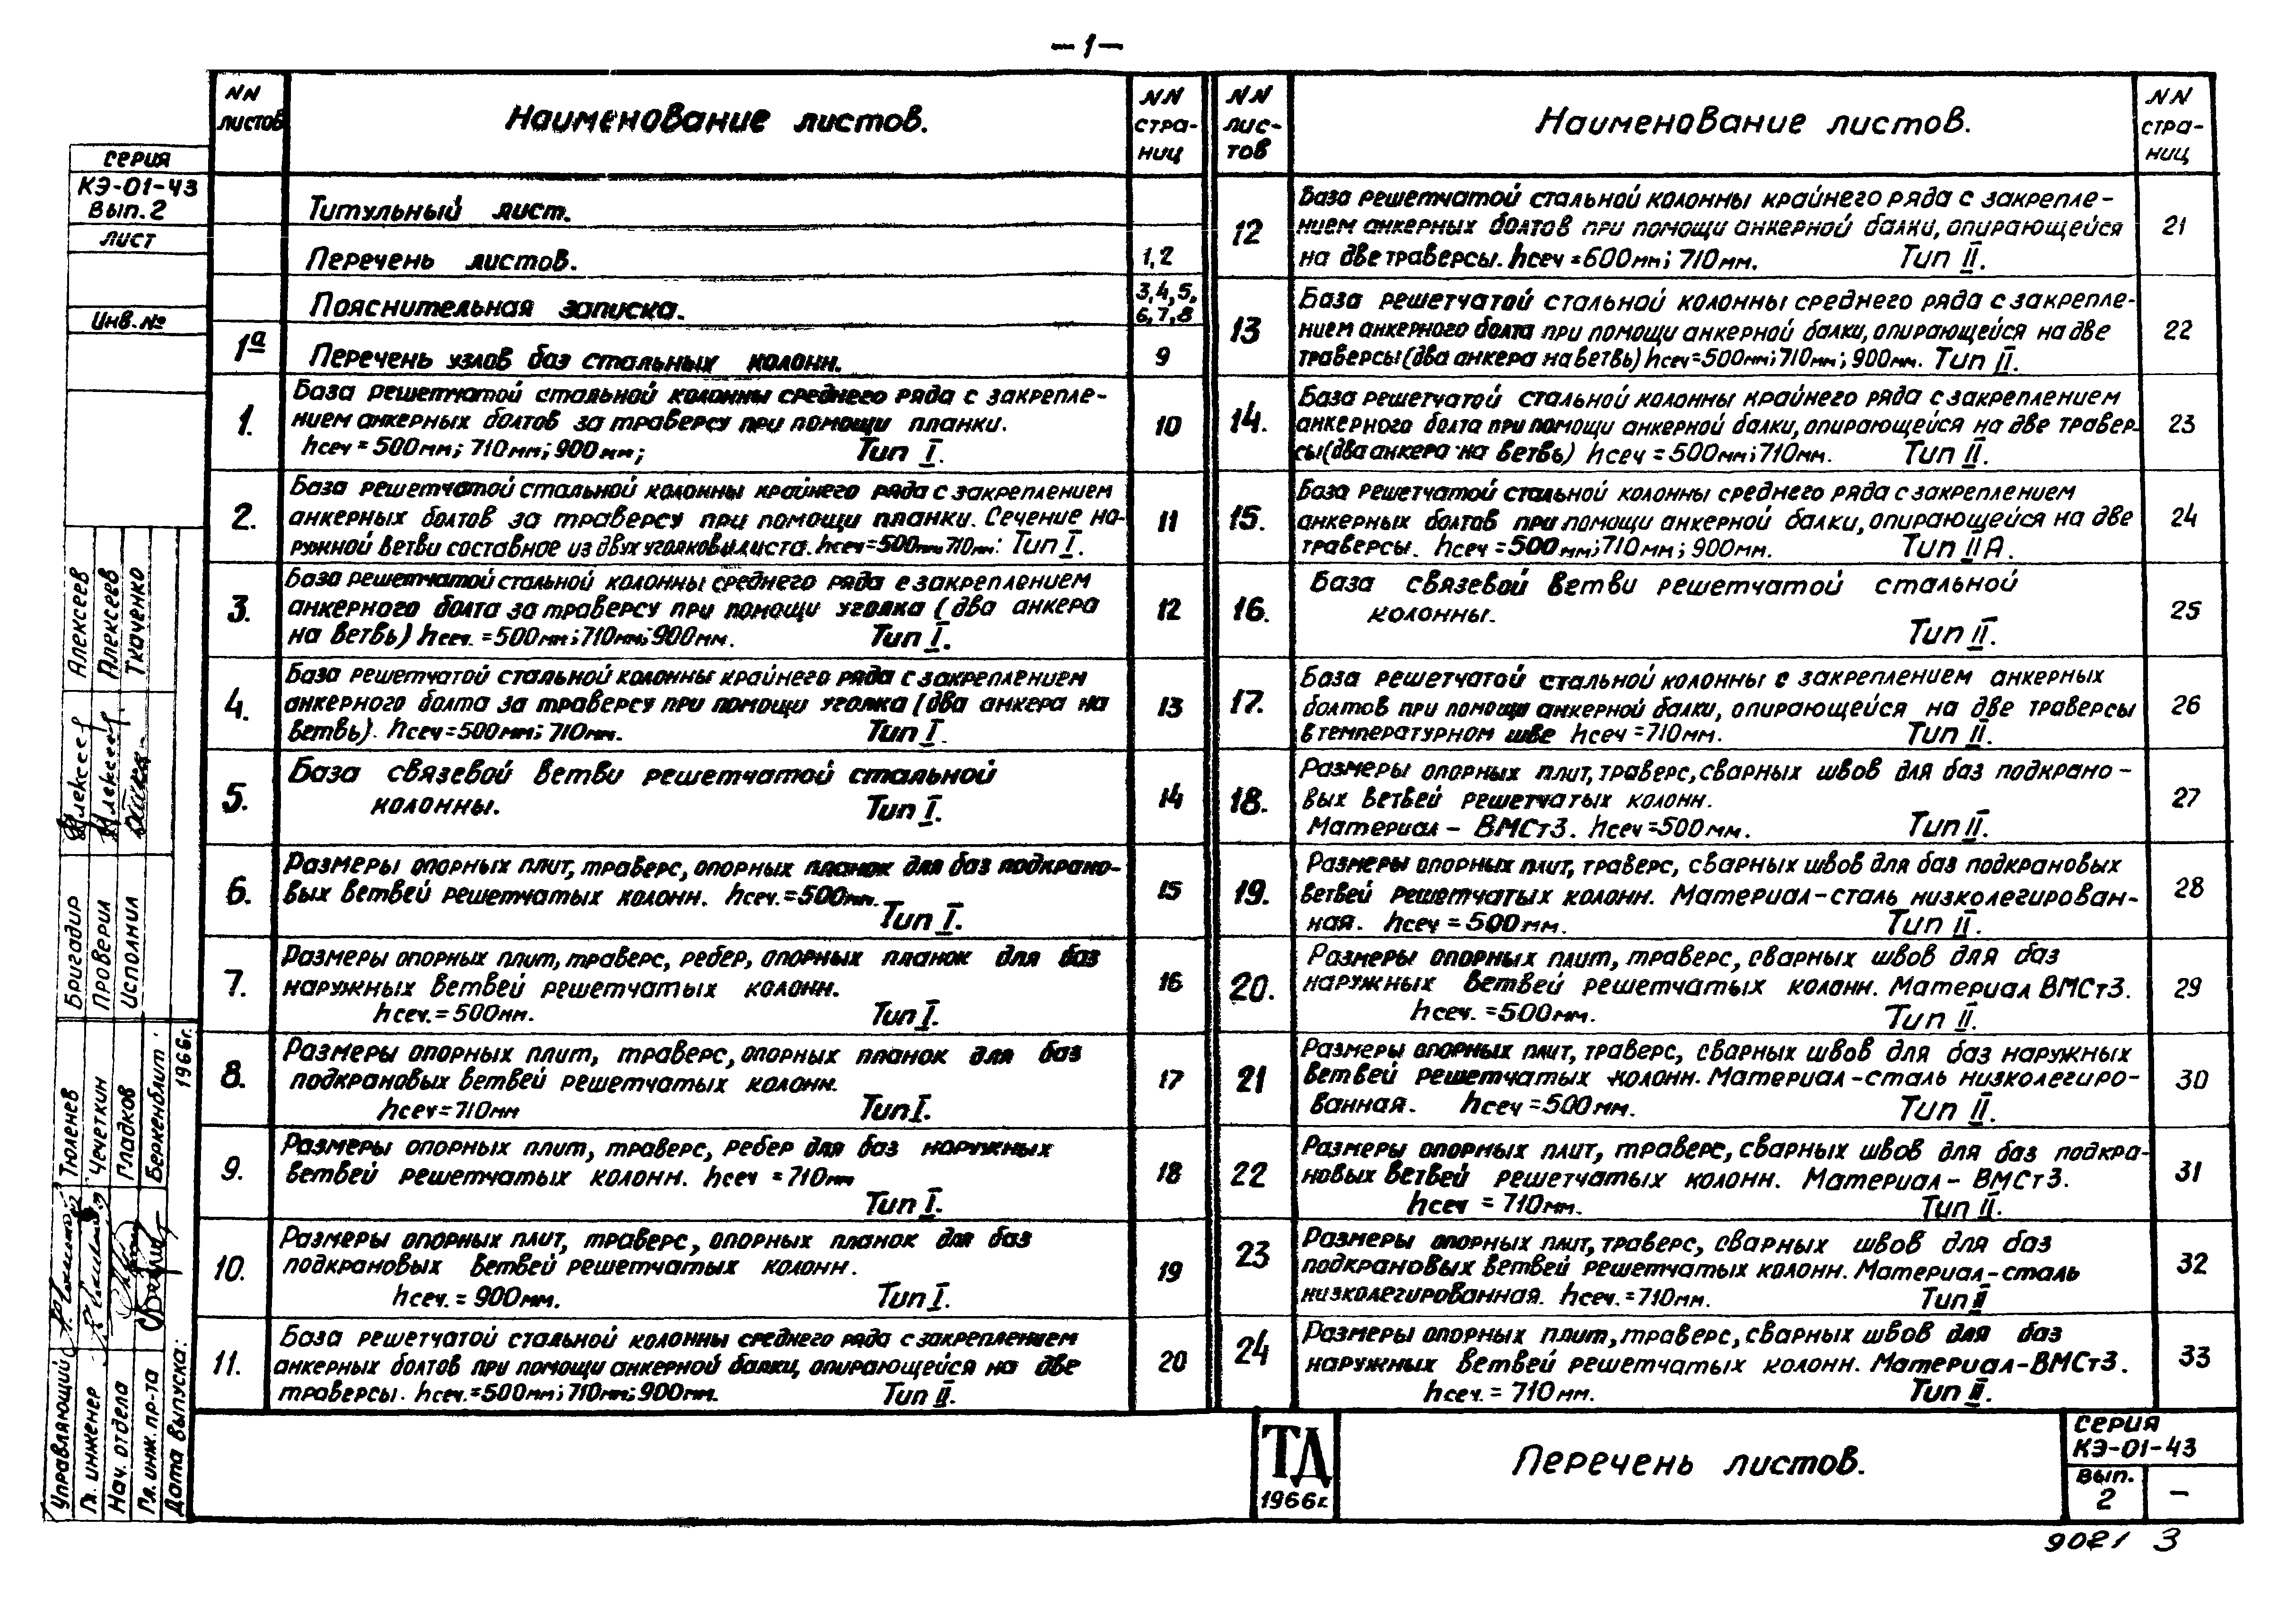 — 1 —
NN
листов
Наименование листов.
NN
стра-
ниц
Титульный лист.
Перечень листов.
1,2
Пояснительная записка.
3,4,5,
6,7,8
1а
Перечень узлов баз стальных колонн.
9
1.
База решетчатой стальной колонны среднего ряда с закрепле-
нием анкерных болтов за траверсу при помощи планки.
hсеч = 500мм; 710мм; 900мм; Тип I.
10
2.
База решетчатой стальной колонны крайнего ряда с закреплением
анкерных болтов за траверсу при помощи планки. Сечение на-
ружной ветви составное из двух уголков и листа. hсеч=500мм 710мм: Тип I.
11
3.
База решетчатой стальной колонны среднего ряда с закреплением
анкерного болта за траверсу при помощи уголка (два анкера
на ветвь) hсеч. =500мм; 710мм; 900мм. Тип I.
12
4.
База решетчатой стальной колонны крайнего ряда с закреплением
анкерного болта за траверсу при помощи уголка (два анкера на
ветвь). hсеч=500мм; 710мм. Тип I.
13
5.
База связевой ветви решетчатой стальной
колонны. Тип I.
14
6.
Размеры опорных плит, траверс, опорных планок для баз подкрано-
вых ветвей решетчатых колонн. hсеч.=500мм.
Тип I.
15
7.
Размеры опорных плит, траверс, ребер, опорных планок для баз
наружных ветвей решетчатых колонн.
hсеч.=500мм. Тип I.
16
8.
Размеры опорных плит, траверс, опорных планок для баз
подкрановых ветвей решетчатых колонн.
hсеч=710мм Тип I.
17
9.
Размеры опорных плит, траверс, ребер для баз наружных
ветвей решетчатых колонн. hсеч =710мм
Тип I.
18
10.
Размеры опорных плит, траверс, опорных планок для баз
подкрановых ветвей решетчатых колонн.
hсеч. = 900мм. Тип I.
19
11.
База решетчатой стальной колонны среднего ряда с закреплением
анкерных болтов при помощи анкерной балки, опирающейся на две
траверсы. hсеч.=500мм; 710мм; 900мм. Тип II.
20
NN
лис-
тов
Наименование листов.
NN
стра-
ниц
12
База решетчатой стальной колонны крайнего ряда с закрепле-
нием анкерных болтов при помощи анкерной балки, опирающейся
на две траверсы. hсеч =600мм; 710мм. Тип II.
21
13
База решетчатой стальной колонны среднего ряда с закрепле-
нием анкерного болта при помощи анкерной балки, опирающейся на две
траверсы (два анкера на ветвь) hсеч=500мм; 710мм; 900мм. Тип II.
22
14.
База решетчатой стальной колонны крайнего ряда с закреплением
анкерного болта при помощи анкерной балки, опирающейся на две травер-
сы (два анкера на ветвь) hсеч =500мм; 710мм. Тип II.
23
15.
База решетчатой стальной колонны среднего ряда с закреплением
анкерных болтов при помощи анкерной балки, опирающейся на две
траверсы. hсеч =500мм; 710мм; 900мм. Тип IIА.
24
16.
База связевой ветви решетчатой стальной
колонны.
Тип II.
25
17.
База решетчатой стальной колонны с закреплением анкерных
болтов при помощи анкерной балки, опирающейся на две траверсы
в температурном шве hсеч =710мм. Тип II.
26
18.
Размеры опорных плит, траверс, сварных швов для баз подкрано-
вых ветвей решетчатых колонн.
Материал – ВМСт3. hсеч =500мм. Тип II.
27
19.
Размеры опорных плит, траверс, сварных швов для баз подкрановых
ветвей решетчатых колонн. Материал–сталь низколегирован-
ная. hсеч =500мм. Тип II.
28
20.
Размеры опорных плит, траверс, сварных швов для баз
наружных ветвей решетчатых колонн. Материал ВМСт3.
hсеч. =500мм. Тип II.
29
21
Размеры опорных плит, траверс, сварных швов для баз наружных
ветвей решетчатых колонн. Материал–сталь низколегиро-
ванная. hсеч =500мм. Тип II.
30
22
Размеры опорных плит, траверс, сварных швов для баз подкра-
новых ветвей решетчатых колонн. Материал – ВМСт3.
hсеч = 710мм. Тип II.
31
23
Размеры опорных плит, траверс, сварных швов для баз
подкрановых ветвей решетчатых колонн. Материал–сталь
низколегированная. hсеч. =710мм. Тип II
32
24
Размеры опорных плит, траверс, сварных швов для баз
наружных ветвей решетчатых колонн. Материал–ВМСт3.
hсеч. = 710мм. Тип II.
33
серия
КЭ-01-43
Вып. 2
лист
Инв. №
Бригадир Алексеев
Проверил Алексеев
Исполнил Ткаченко
Управляющий Тюленев
Гл. инженер Чечеткин
Нач. отдела Гладков
Гл. инж. пр-та Беркенблит
Дата выпуска: 1966г.
ТД
1966г.
Перечень листов.
серия
КЭ-01-43
вып.
2
–
9021 3